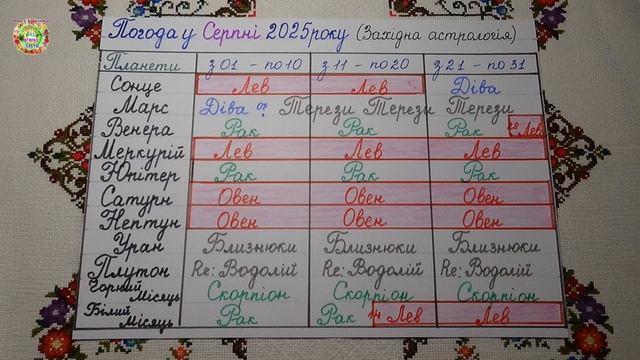 Погода у Серпні 2025 року (Західна астрологія)
Планети з 01 - по 10 з 11 - по 20 з 21 - по 31
Сонце Лев Лев Діва
Марс Діва 07 Терези Терези Терези
Венера Рак Рак Рак 26 Лев
Меркурій Лев Лев Лев
Юпітер Рак Рак Рак
Сатурн Овен Овен Овен
Нептун Овен Овен Овен
Уран Близнюки Близнюки Близнюки
Плутон Re: Водолій Re: Водолій Re: Водолій
Чорний Місяць Скорпіон Скорпіон Скорпіон
Білий Місяць Рак Рак 14 Лев Лев